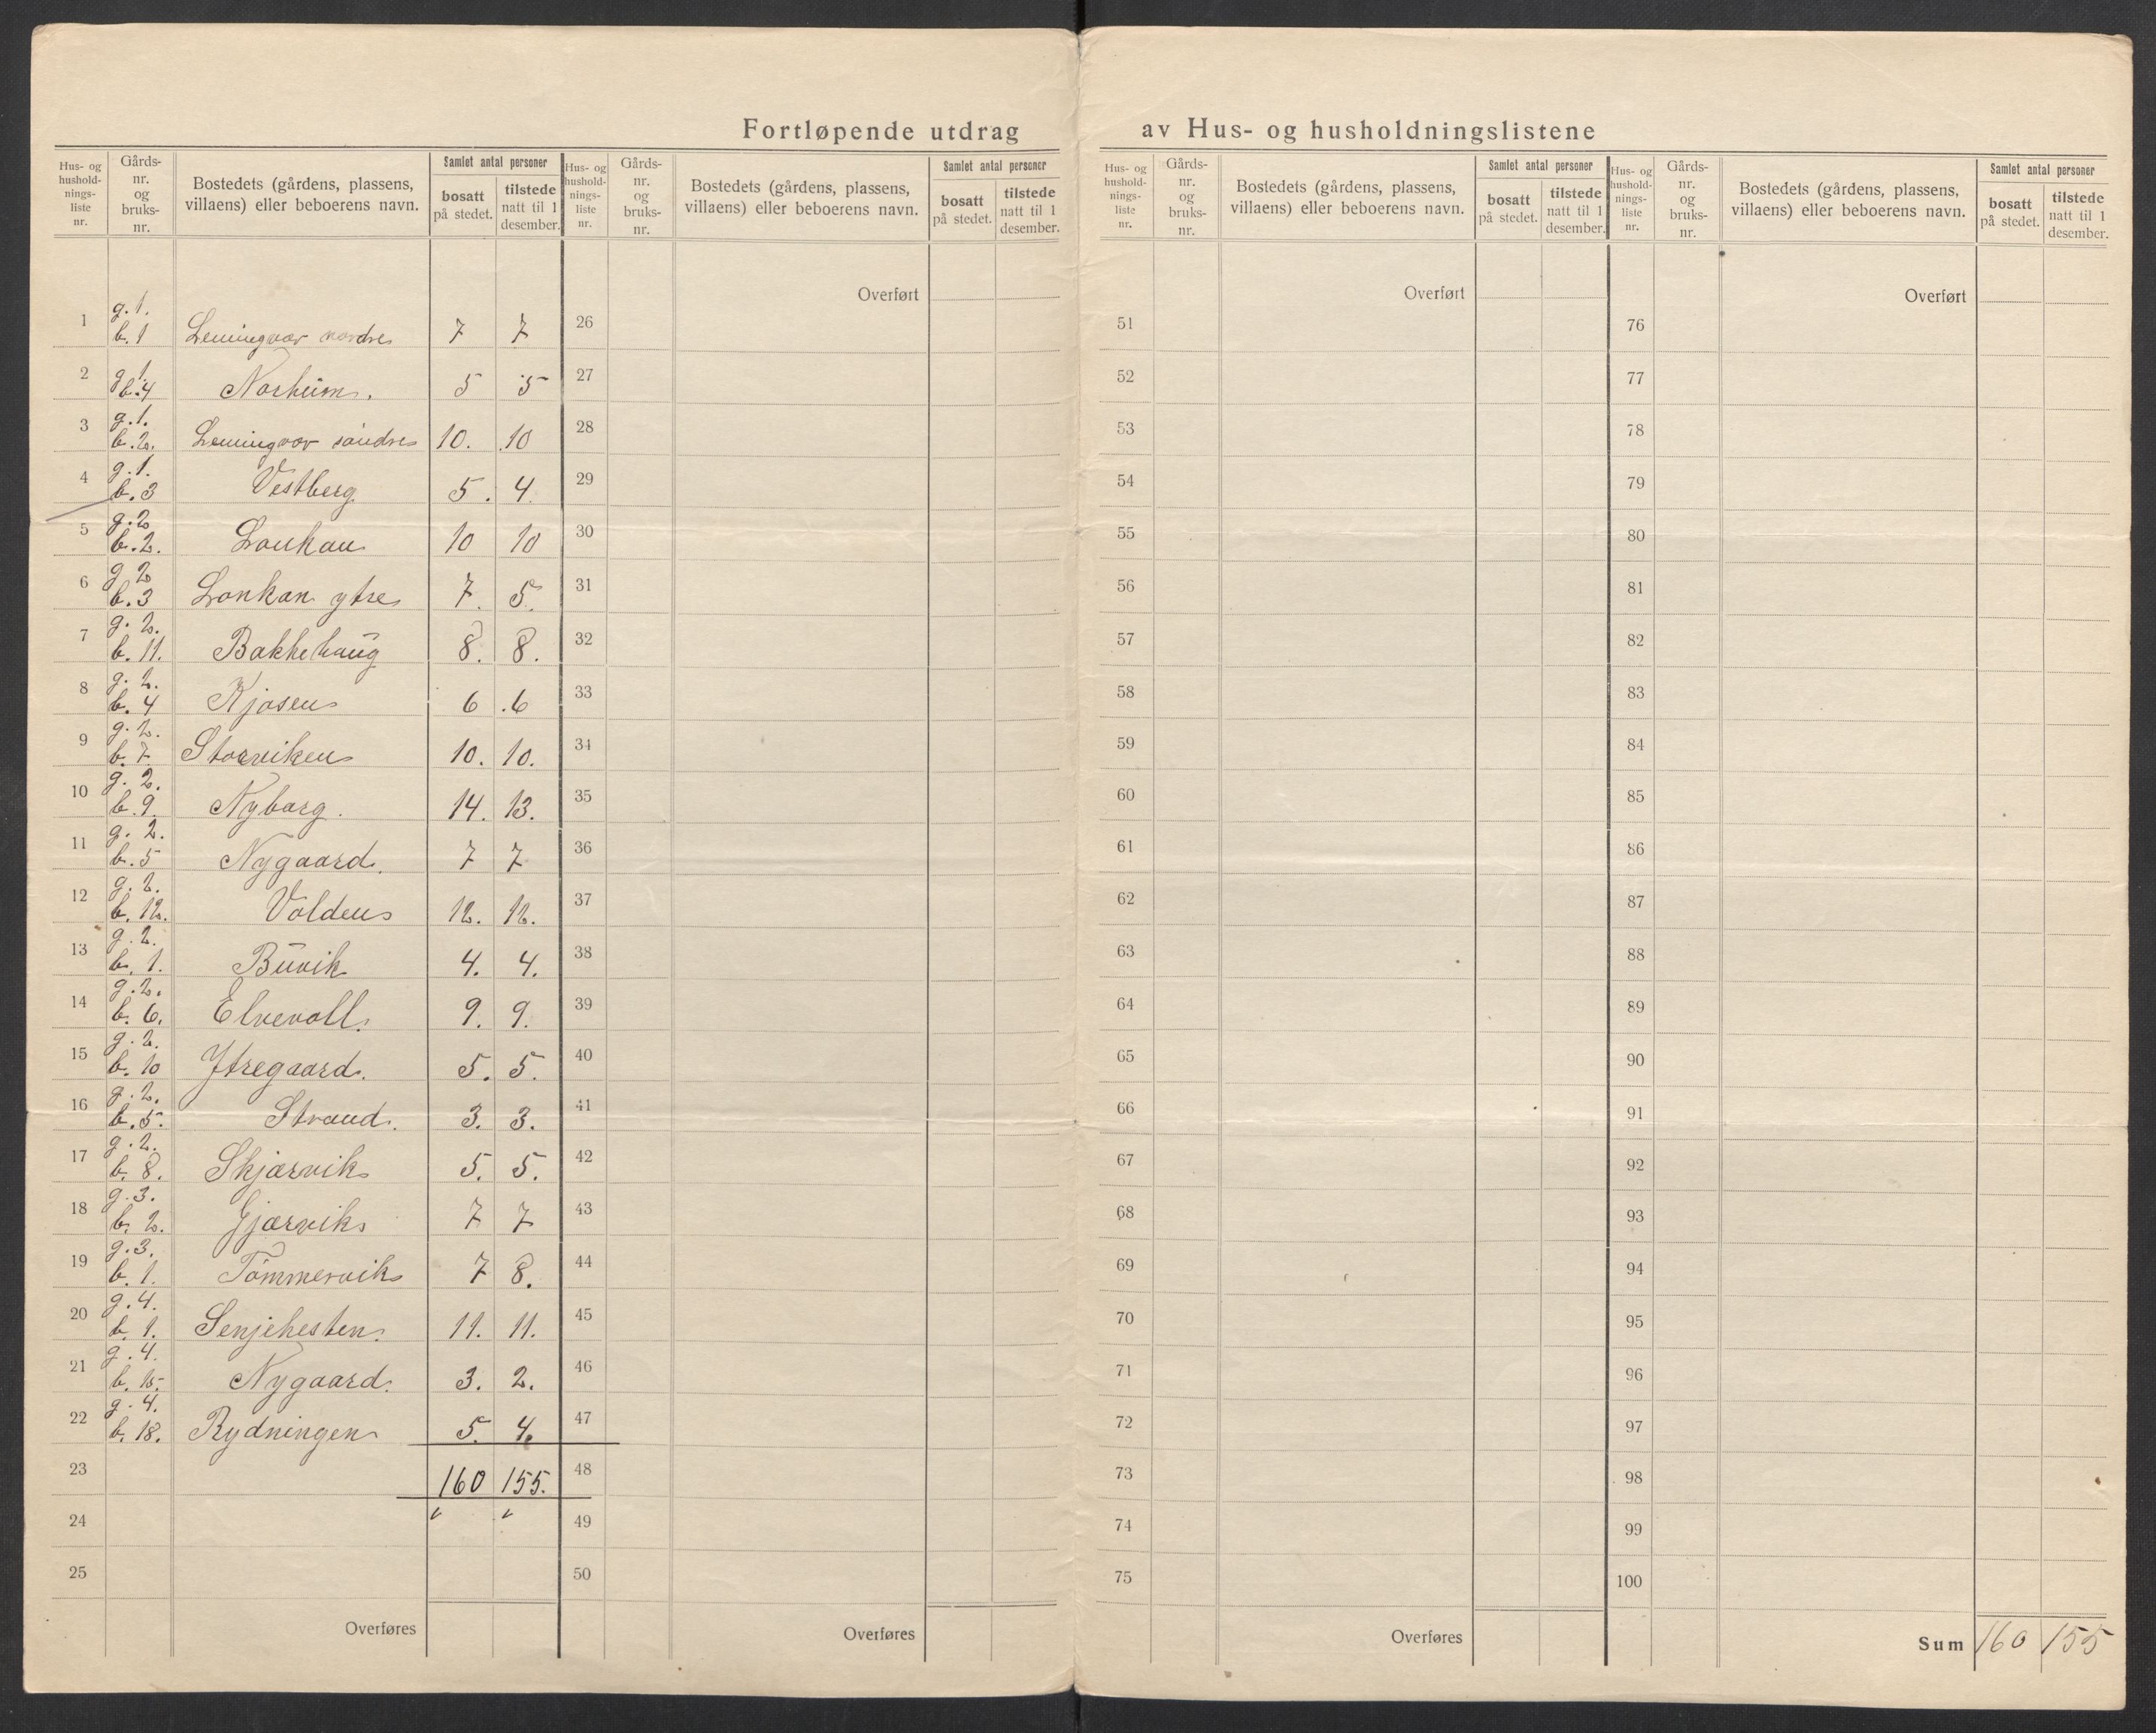 Fortløpende utdrag av Hus- og husholdningslistene
Hus- og husholdningsliste nr. | Gårds-nr. og bruks-nr. | Bostedets (gårdens, plassens, villaens) eller beboerens navn. | Samlet antal personer: bosatt på stedet. | tilstede natt til 1 desember.
1 g.1. b.1 Lemingvær nordre 7 7
2 g.1. b.4 Norheim. 5 5
3 g.1. b.2. Lemingvær söndre 10. 10
4 g.1. b.3 Vestberg 5. 4.
5 g.2 b.2. Lonkan 10 10
6 g.2 b.3 Lonkan ytre 7. 5.
7 g.2. b.11. Bakkehaug 8. 8.
8 g.2. b.4 Kjosen 6 6
9 g.2. b.7. Storviken 10. 10.
10 g.2. b.9. Nyborg. 14. 13.
11 g.2. b.5 Nygaard. 7 7
12 g.2. b.12. Volden 12. 12.
13 g.2. b.1. Buvik 4. 4.
14 g.2. b.6. Elvevoll. 9. 9.
15 g.2. b.10 Ytregaard. 5. 5.
16 g.2. b.5. Strand. 3. 3.
17 g.2. b.8. Skjærvik 5. 5.
18 g.3. b.2. Gjærvik 7 7
19 g.3. b.1. Tömmervik 7 8.
20 g.4. b.1. Senjehesten. 11. 11.
21 g.4. b.15. Nygaard. 3. 2.
22 g.4. b.18. Rydningen 5. 4.
23 160 155.
24
25
Overføres
Hus- og husholdningsliste nr. | Gårds-nr. og bruks-nr. | Bostedets (gårdens, plassens, villaens) eller beboerens navn. | Samlet antal personer: bosatt på stedet. | tilstede natt til 1 desember.
Overført
26
27
28
29
30
31
32
33
34
35
36
37
38
39
40
41
42
43
44
45
46
47
48
49
50
Overføres
Hus- og husholdningsliste nr. | Gårds-nr. og bruks-nr. | Bostedets (gårdens, plassens, villaens) eller beboerens navn. | Samlet antal personer: bosatt på stedet. | tilstede natt til 1 desember.
Overført
51
52
53
54
55
56
57
58
59
60
61
62
63
64
65
66
67
68
69
70
71
72
73
74
75
Overføres
Hus- og husholdningsliste nr. | Gårds-nr. og bruks-nr. | Bostedets (gårdens, plassens, villaens) eller beboerens navn. | Samlet antal personer: bosatt på stedet. | tilstede natt til 1 desember.
Overført
76
77
78
79
80
81
82
83
84
85
86
87
88
89
90
91
92
93
94
95
96
97
98
99
100
Sum 160 155